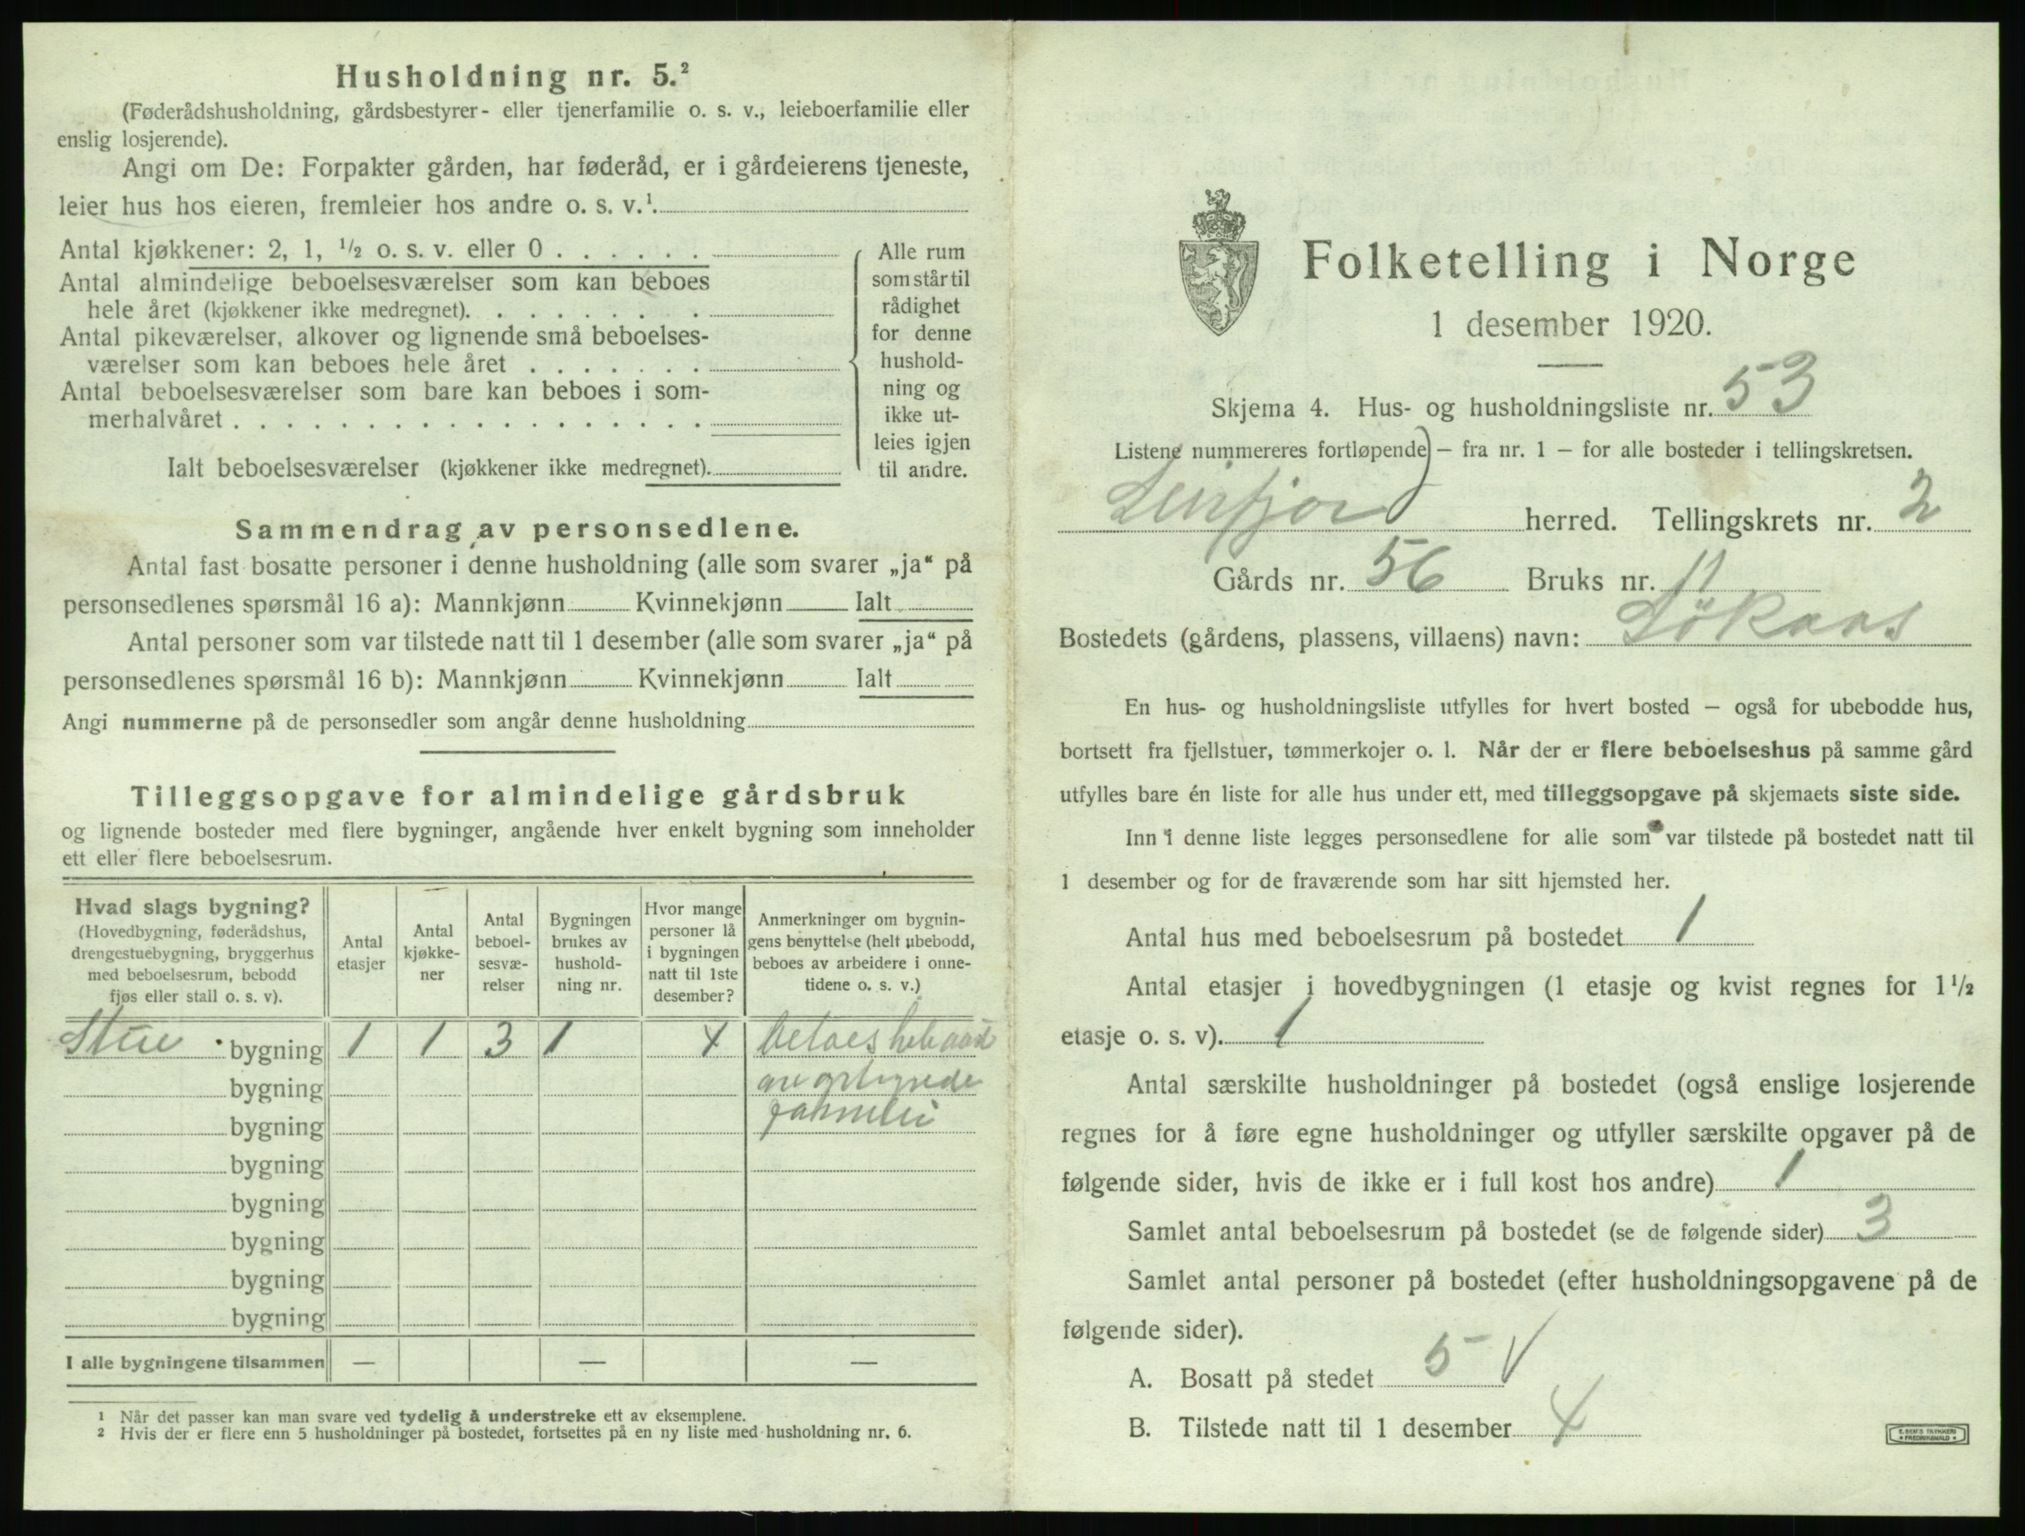 Husholdning nr. 5.²
(Føderådshusholdning, gårdsbestyrer- eller tjenerfamilie o. s. v., leieboerfamilie eller
enslig losjerende).
Angi om De: Forpakter gården, har føderåd, er i gårdeierens tjeneste,
leier hus hos eieren, fremleier hos andre o. s. v.¹.
Antal kjøkkener: 2, 1, ½ o. s. v. eller 0 . . . . . .
Antal almindelige beboelsesværelser som kan beboes
hele året (kjøkkener ikke medregnet). . . . . . . . .
Antal pikeværelser, alkover og lignende små beboelses-
værelser som kan beboes hele året . . . . . . .
Antal beboelsesværelser som bare kan beboes i som-
merhalvåret . . . . . . . . . . . . . . . . . .
Ialt beboelsesværelser (kjøkkener ikke medregnet).
Alle rum
som står til
rådighet
for denne
hushold-
ning og
ikke ut-
leies igjen
til andre.
Sammendrag av personsedlene.
Antal fast bosatte personer i denne husholdning (alle som svarer „ja“ på
personsedlenes spørsmål 16 a): Mannkjønn Kvinnekjønn Ialt
Antal personer som var tilstede natt til 1 desember (alle som svarer „ja“ på
personsedlenes spørsmål 16 b): Mannkjønn Kvinnekjønn Ialt
Angi nummerne på de personsedler som angår denne husholdning
Tilleggsopgave for almindelige gårdsbruk
og lignende bosteder med flere bygninger, angående hver enkelt bygning som inneholder
ett eller flere beboelsesrum.
Hvad slags bygning?
(Hovedbygning, føderådshus,
drengestuebygning, bryggerhus
med beboelsesrum, bebodd
fjøs eller stall o. s. v).
Antal
etasjer
Antal
kjøkke-
ner
Antal
beboel-
sesvæ-
relser
Bygningen
brukes av
hushold-
ning nr.
Hvor mange
personer lå
i bygningen
natt til 1ste
desember?
Anmerkninger om bygnin-
gens benyttelse (helt ubebodd,
beboes av arbeidere i onne-
tidene o. s. v.)
Stue bygning 1 1 3 1 4
bygning
bygning familei
bygning
bygning
bygning
bygning
bygning
I alle bygningene tilsammen — — —
¹ Når det passer kan man svare ved tydelig å understreke ett av eksemplene.
² Hvis der er flere enn 5 husholdninger på bostedet, fortsettes på en ny liste med husholdning nr. 6.
Folketelling i Norge
1 desember 1920.
Skjema 4. Hus- og husholdningsliste nr. 53
Listene nummereres fortløpende — fra nr. 1 — for alle bosteder i tellingskretsen.
Leirfjord herred. Tellingskrets nr. 2
Gårds nr. 56 Bruks nr. 11
Bostedets (gårdens, plassens, villaens) navn: Lökaas
En hus- og husholdningsliste utfylles for hvert bosted — også for ubebodde hus,
bortsett fra fjellstuer, tømmerkojer o. l. Når der er flere beboelseshus på samme gård
utfylles bare én liste for alle hus under ett, med tilleggsopgave på skjemaets siste side.
Inn i denne liste legges personsedlene for alle som var tilstede på bostedet natt til
1 desember og for de fraværende som har sitt hjemsted her.
Antal hus med beboelsesrum på bostedet 1
Antal etasjer i hovedbygningen (1 etasje og kvist regnes for 1½
etasje o. s. v). 1
Antal særskilte husholdninger på bostedet (også enslige losjerende
regnes for å føre egne husholdninger og utfyller særskilte opgaver på de
følgende sider, hvis de ikke er i full kost hos andre) 1
Samlet antal beboelsesrum på bostedet (se de følgende sider) 3
Samlet antal personer på bostedet (efter husholdningsopgavene på de
følgende sider).
A. Bosatt på stedet 5 V
B. Tilstede natt til 1 desember 4